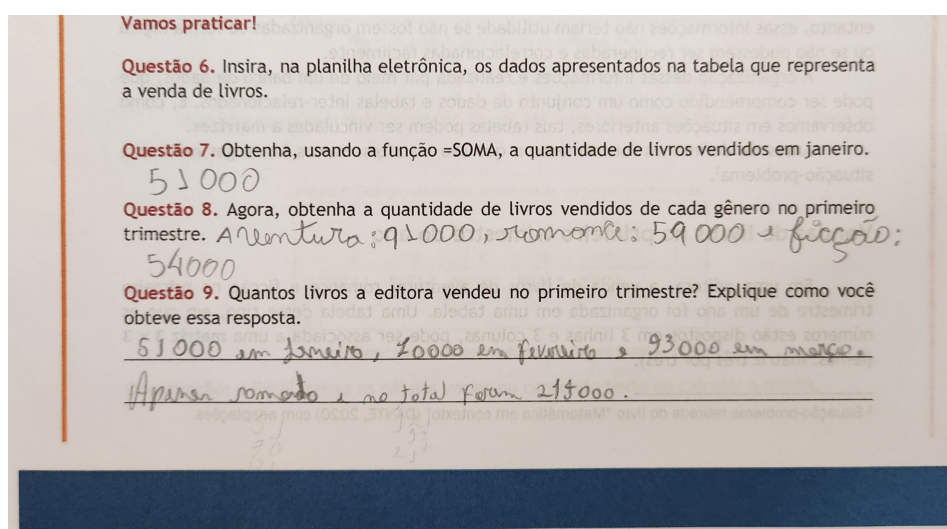 Vamos praticar!
Questão 6. Insira, na planilha eletrônica, os dados apresentados na tabela que representa
a venda de livros.
Questão 7. Obtenha, usando a função =SOMA, a quantidade de livros vendidos em janeiro.
51000
Questão 8. Agora, obtenha a quantidade de livros vendidos de cada gênero no primeiro
trimestre. Aventura: 91000, romance: 59000 e ficção:
54000
Questão 9. Quantos livros a editora vendeu no primeiro trimestre? Explique como você
obteve essa resposta.
51000 em Janeiro, 70000 em fevereiro e 93000 em março.
Apenas somando e no total foram 214000.